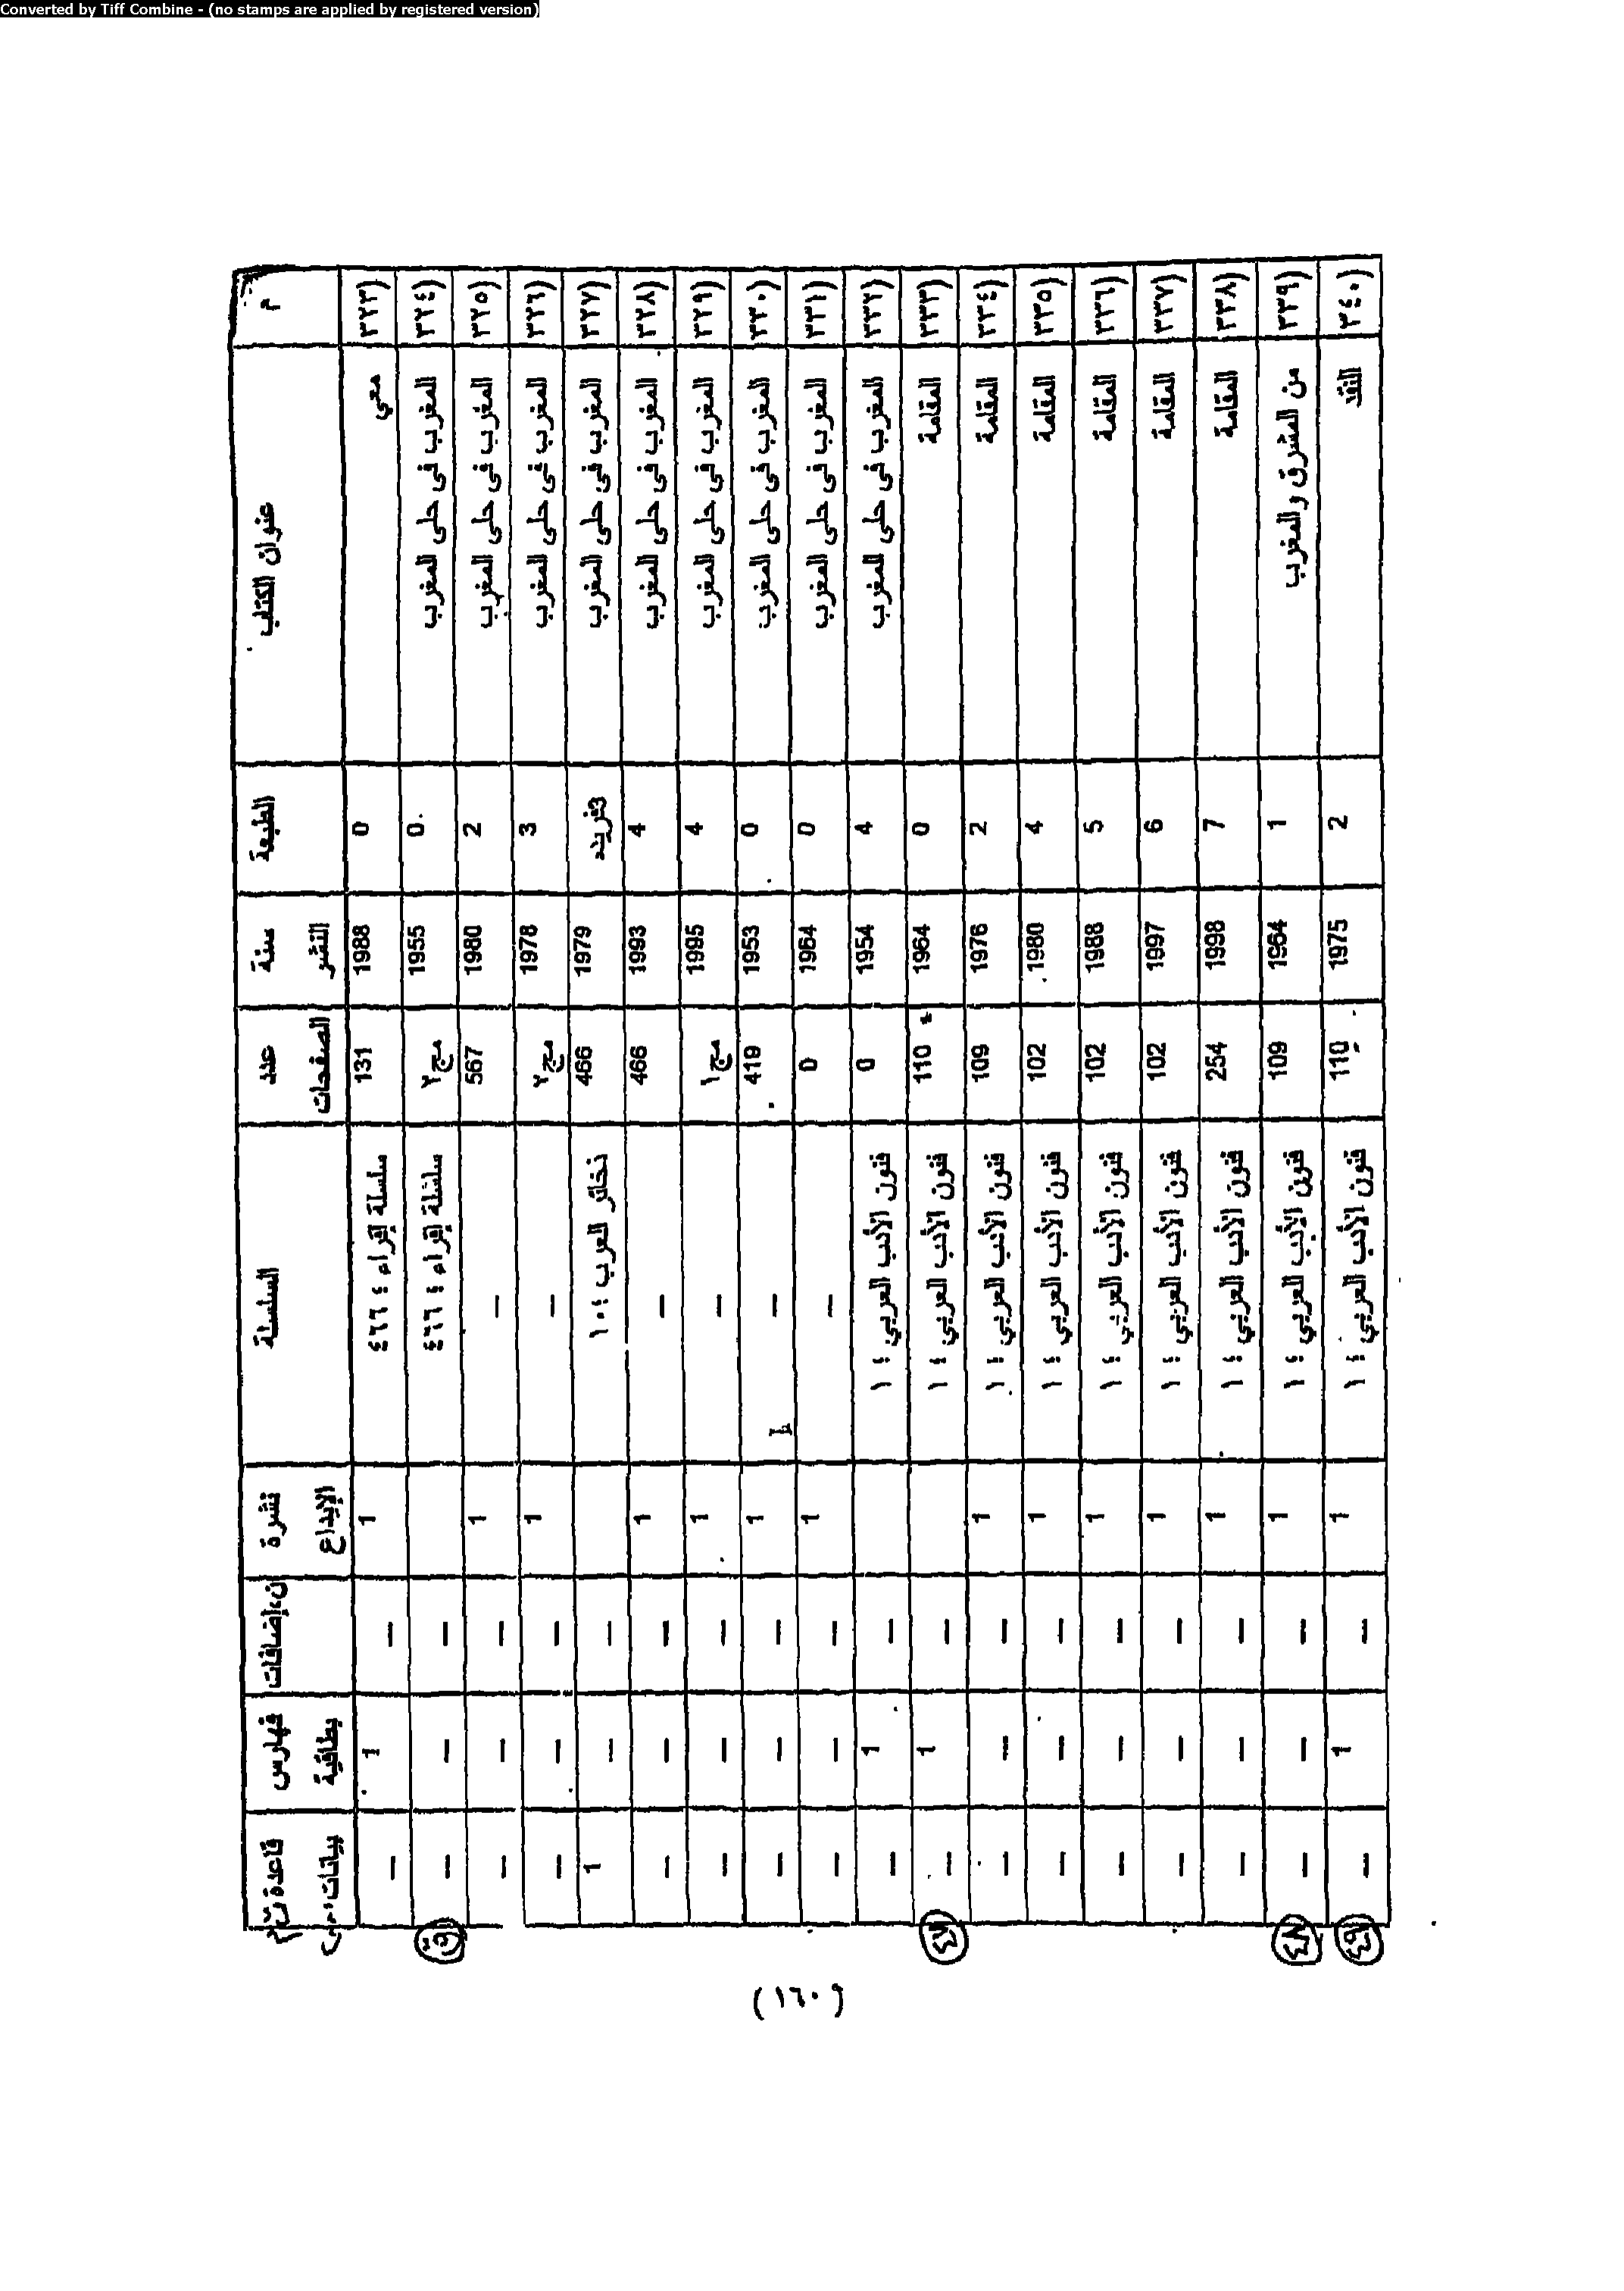 Converted by Tiff Combine - (no stamps are applied by registered version)
م عنوان الكتاب الطبعة سنة النشر عدد الصفحات السلسلة نشرة الإيداع ن،إضافات فهارس بطاقية قاعدة بيانات
(٢٢٣ معي 0 1988 131 سلسلة إقراء ؛ ٤٦٦ 1 — 1 —
(٢٢٤ المغرب فى حلى المغرب 0 1955 مج٢ سلسلة إقراء ؛ ٤٦٦ — — —
(٢٢٥ المغرب فى حلى المغرب 2 1980 567 — 1 — — —
(٢٢٦ المغرب فى حلى المغرب 3 1978 مج٢ — 1 — — —
(٢٢٧ المغرب فى حلى المغرب 1979 466 ذخائر العرب ؛ ١٠ — — 1
(٢٢٨ المغرب فى حلى المغرب 4 1993 466 — 1 — — —
(٢٢٩ المغرب فى حلى المغرب 4 1995 مج١ — 1 — — —
(٢٣٠ المغرب فى حلى المغرب 0 1953 419 — 1 — — —
(٢٣١ المغرب فى حلى المغرب 0 1964 0 — 1 — — —
(٢٣٢ المغرب فى حلى المغرب 4 1954 0 فنون الأدب العربي ؛ ١ — 1 —
(٢٣٣ المقامة 0 1964 110 فنون الأدب العربي ؛ ١ — 1 —
(٢٣٤ المقامة 2 1976 109 فنون الأدب العربي ؛ ١ 1 — — —
(٢٣٥ المقامة 4 1980 102 فنون الأدب العربي ؛ ١ 1 — — —
(٢٣٦ المقامة 5 1988 102 فنون الأدب العربي ؛ ١ 1 — — —
(٢٣٧ المقامة 6 1997 102 فنون الأدب العربي ؛ ١ 1 — — —
(٢٣٨ المقامة 7 1998 254 فنون الأدب العربي ؛ ١ 1 — — —
(٢٣٩ من المشرق والمغرب 1 1964 109 فنون الأدب العربي ؛ ١ 1 — — —
(٢٤٠ النقد 2 1975 110 فنون الأدب العربي ؛ ١ 1 — 1 —
ق
٤٧
٤٨
٤٩
(١٦٠)